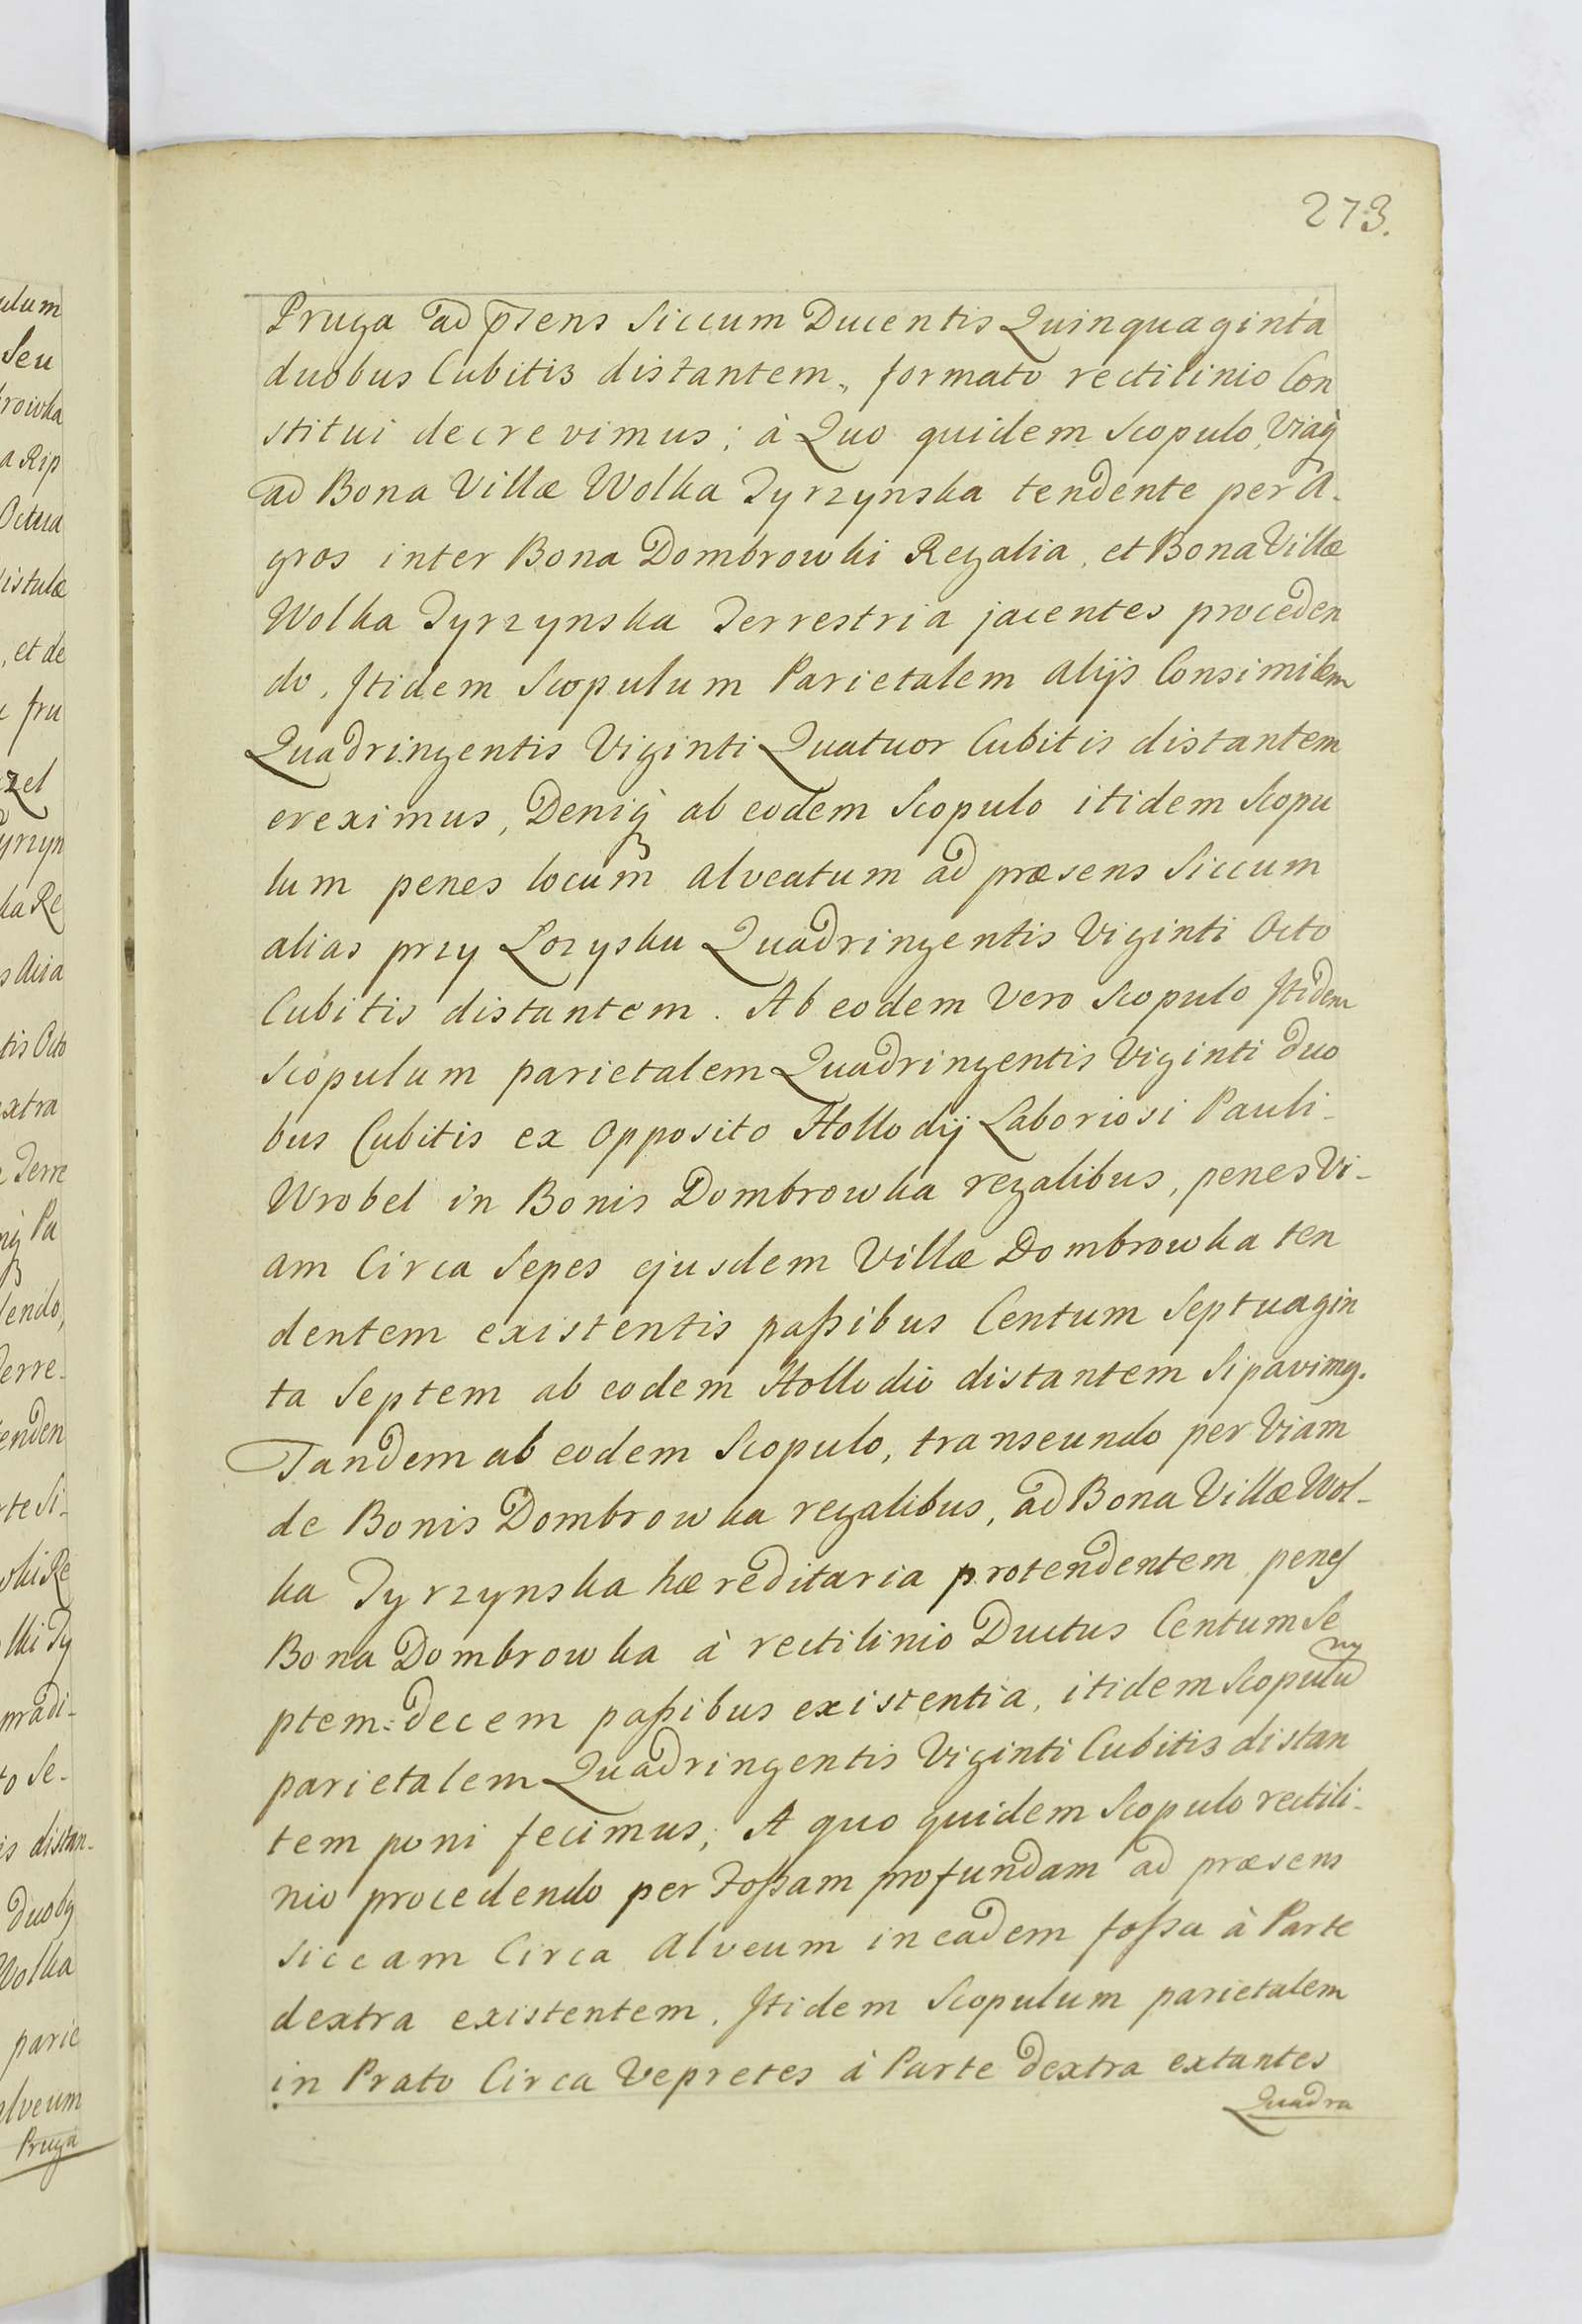 273.
Pruga ad p̃sens Siccum Ducentis Quinquaginta
duobus Cubitis distantem, formato rectilinio Con
stitui decrevimus; à Quo quidem Scopulo, Viaq̃
ad Bona Villæ Wolka Tyrzynska tendente per A-
gros inter Bona Dombrowki Regalia, et Bona Villæ
Wolka Tyrzynska Terrestria jacentes proceden
do, Itidem Scopulum Parietalem alijs Consimilem
Quadringentis Viginti Quatuor Cubitis distantem
ereximus, Deniq̃ ab eodem Scopulo itidem Scopu
lum penes locum alveatum ad præsens Siccum
alias przy Lozysku Quadringentis Viginti Octo
Cubitis distantem. Ab eodem Vero Scopulo Itidem
Scopulum parietalem Quadringentis Viginti duo
bus Cubitis ex Opposito Hollodij Laboriosi Pauli-
Wrobel in Bonis Dombrowka regalibus, penes Vi-
am Circa Sepes ejusdem Villæ Dombrowka ten
dentem existentis paßibus Centum Septuagin
ta Septem ab eodem Hollodio distantem Sipavimꝰ.
Tandem ab eodem Scopulo, transeundo per Viam
de Bonis Dombrowka regalibus, ad Bona Villæ Wol-
ka Tyrzynska hæreditaria protendentem penes
Bona Dombrowka à rectilinio Ductus Centum Se
ptem=decem paßibus existentia, itidem Scopulum
parietalem Quadringentis Viginti Cubitis distan
tem poni fecimus; A quo quidem Scopulo rectili-
nio procedendo per Foßam profundam ad præsens
siccam Circa Alveum in eadem foßa à Parte
dextra existentem, Itidem Scopulum parietalem
in Prato Circa Vepretes à Parte dextra extantes
Quadra